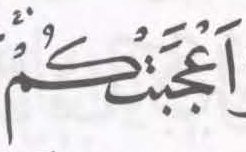 اَعْجَبَتْكُمْ